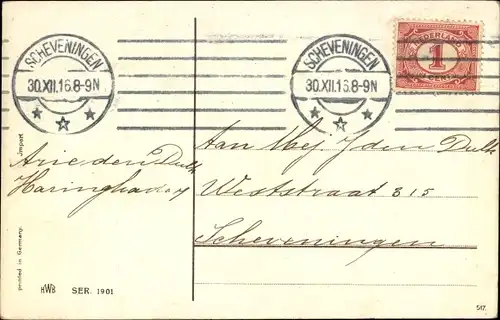 SCHEVENINGEN
30.XII.16.8-9N
SCHEVENINGEN
30.XII.16.8-9N
NEDERLAND
1
CENT
Aan Mej. J den Dulk
Weststraat 315
Scheveningen
Arie den Dulk
Haringkade 7
printed in Germany. Import
HWB SER. 1901
517.